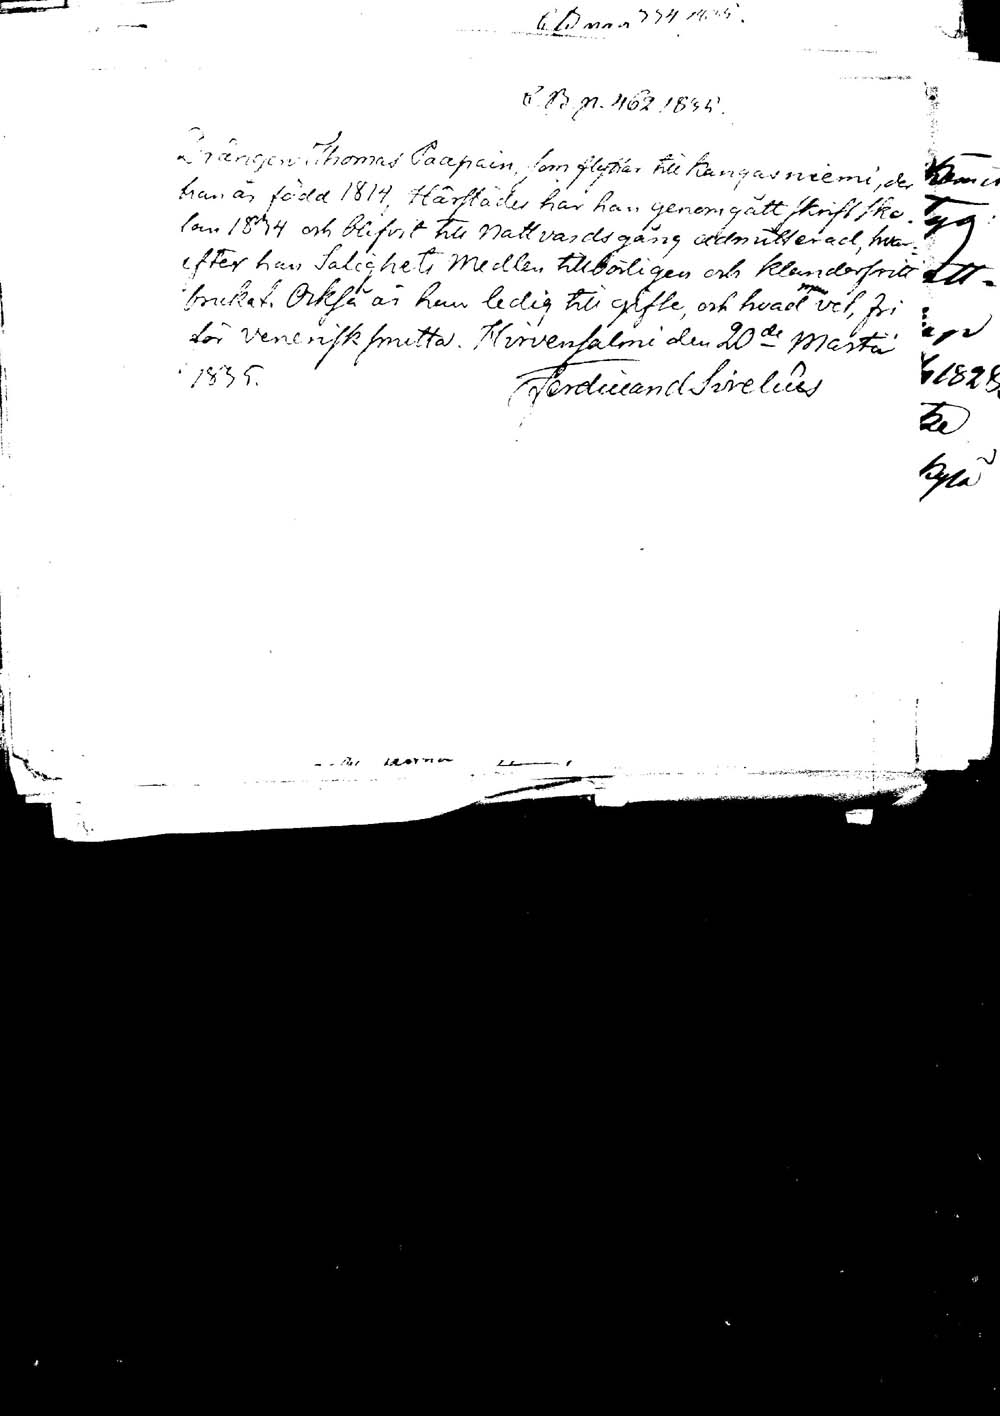 C. B. n. 462 1835.
Drängen Thomas Paapain, som flyttar till Kangasniemi, der
han är född 1814, Härstädes har han genomgått skriftsko-
lan 1834 och blifvit till Nattvardsgång admitterad, hvar-
efter han Salighets Medlen tillbörligen och klanderfritt
brukat. Också är han ledig till gifte, och hvad man vet, fri
för venerisk smitta. Hirvensalmi den 20de Martii
1835.
Ferdinand Sirelius
tt-
1828
kylä